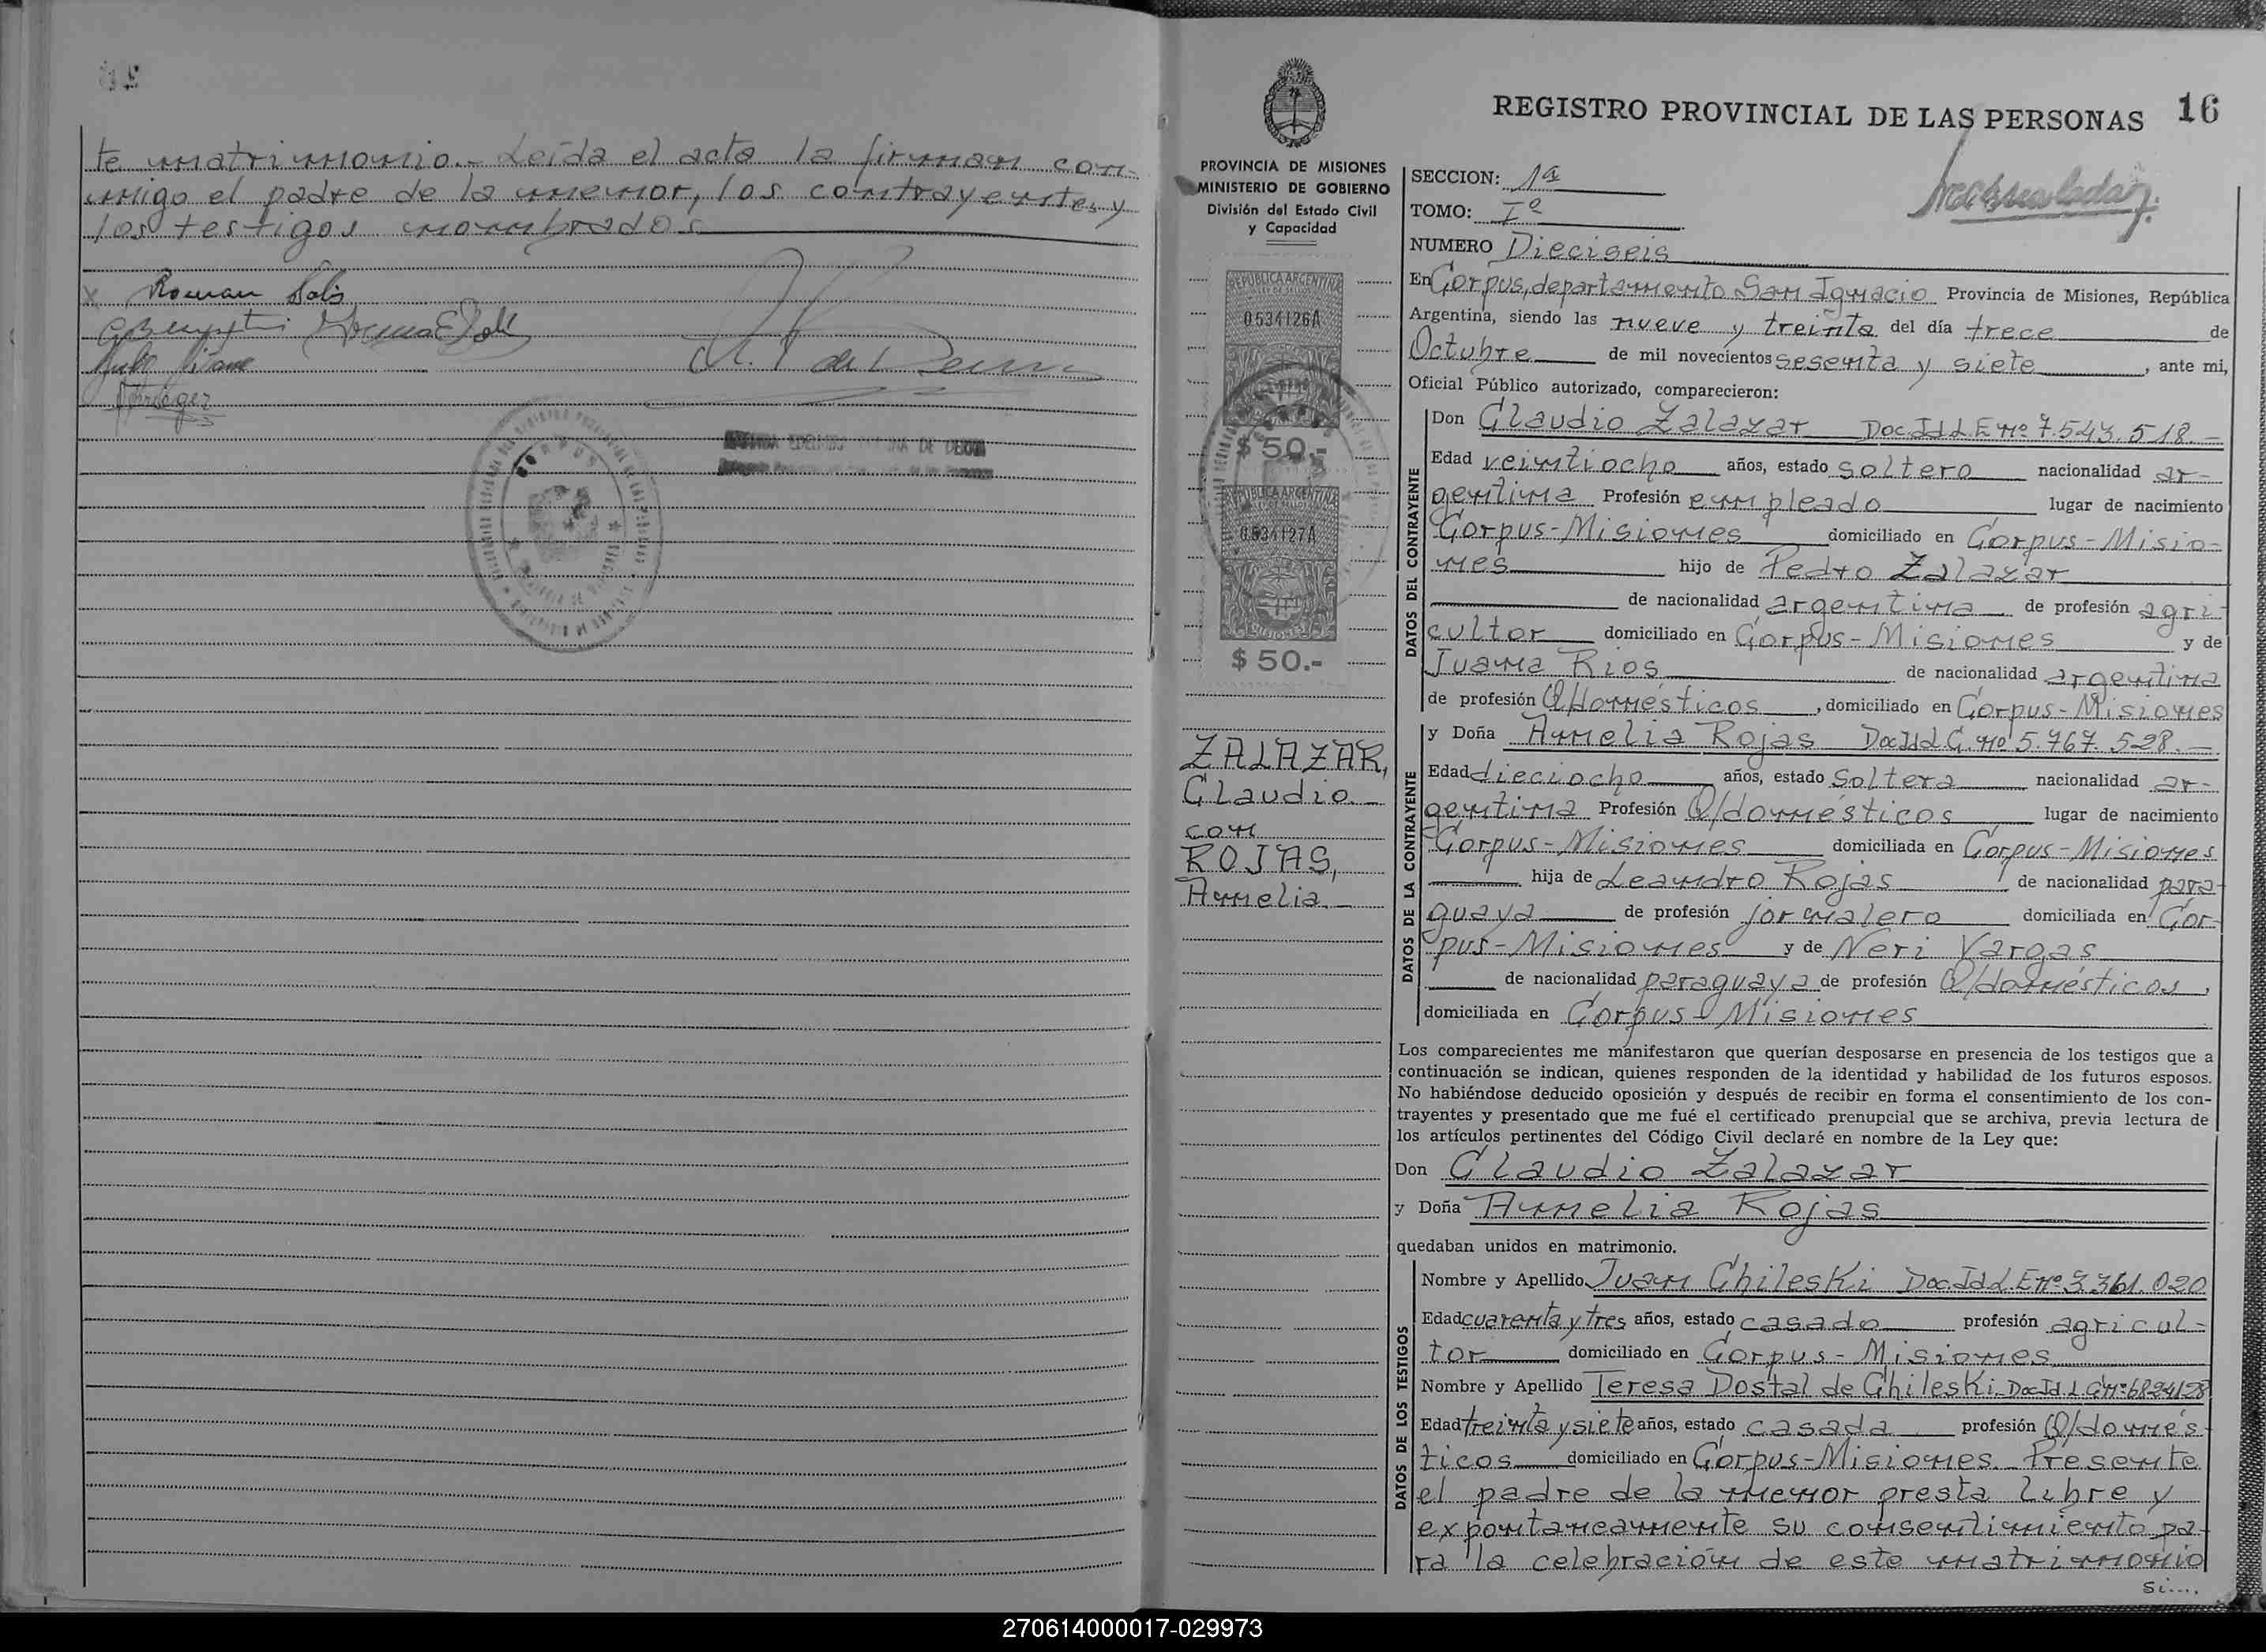 te matrimonio.- Leída el acta la firman con-
migo el padre de la menor, los contrayentes y
los testigos nombrados
x Roman Solis
Krieger
CORPUS
REGISTRO PROVINCIAL DE LAS PERSONAS 16
PROVINCIA DE MISIONES
MINISTERIO DE GOBIERNO
División del Estado Civil
y Capacidad
REPUBLICA ARGENTINA
0534126A
$ 50.-
REPUBLICA ARGENTINA
0534127A
MISIONES
$ 50.-
ZALAZAR,
Claudio.-
con
ROJAS,
Amelia.-
SECCION: 1ª
TOMO: Iº
NUMERO Dieciseis
En Corpus, departamento San Ignacio Provincia de Misiones, República
Argentina, siendo las nueve y treinta del día trece de
Octubre de mil novecientos sesenta y siete, ante mi,
Oficial Público autorizado, comparecieron:
DATOS DEL CONTRAYENTE
Don Claudio Zalazar Doc.Id L.E nº 7.543.518.-
Edad veintiocho años, estado soltero nacionalidad ar-
gentina Profesión empleado lugar de nacimiento
Corpus-Misiones domiciliado en Corpus-Misio-
nes hijo de Pedro Zalazar
de nacionalidad argentina de profesión agri-
cultor domiciliado en Corpus-Misiones y de
Juana Rios de nacionalidad argentina
de profesión Q/domésticos, domiciliado en Corpus-Misiones
DATOS DE LA CONTRAYENTE
y Doña Amelia Rojas Doc.Id L C. nº 5.767.528.-
Edad dieciocho años, estado Soltera nacionalidad ar-
gentina Profesión Q/domésticos lugar de nacimiento
Corpus-Misiones domiciliada en Corpus-Misiones
hija de Leandro Rojas de nacionalidad para-
guaya de profesión jornalero domiciliada en Cor-
pus-Misiones y de Neri Vargas
de nacionalidad paraguaya de profesión Q/domésticos,
domiciliada en Corpus-Misiones
Los comparecientes me manifestaron que querían desposarse en presencia de los testigos que a
continuación se indican, quienes responden de la identidad y habilidad de los futuros esposos.
No habiéndose deducido oposición y después de recibir en forma el consentimiento de los con-
trayentes y presentado que me fué el certificado prenupcial que se archiva, previa lectura de
los artículos pertinentes del Código Civil declaré en nombre de la Ley que:
Don Claudio Zalazar
y Doña Amelia Rojas
quedaban unidos en matrimonio.
DATOS DE LOS TESTIGOS
Nombre y Apellido Juan Chileski Doc.Id L.E nº 3.361.020
Edad cuarenta y tres años, estado casado profesión agricul-
tor domiciliado en Corpus-Misiones
Nombre y Apellido Teresa Dostal de Chileski Doc.Id. L C nº 6824128
Edad treinta y siete años, estado casada profesión Q/domés-
ticos domiciliado en Corpus-Misiones. Presente
el padre de la menor presta libre y
expontaneamente su consentimiento pa-
ra la celebración de este matrimonio
si....
270614000017-029973